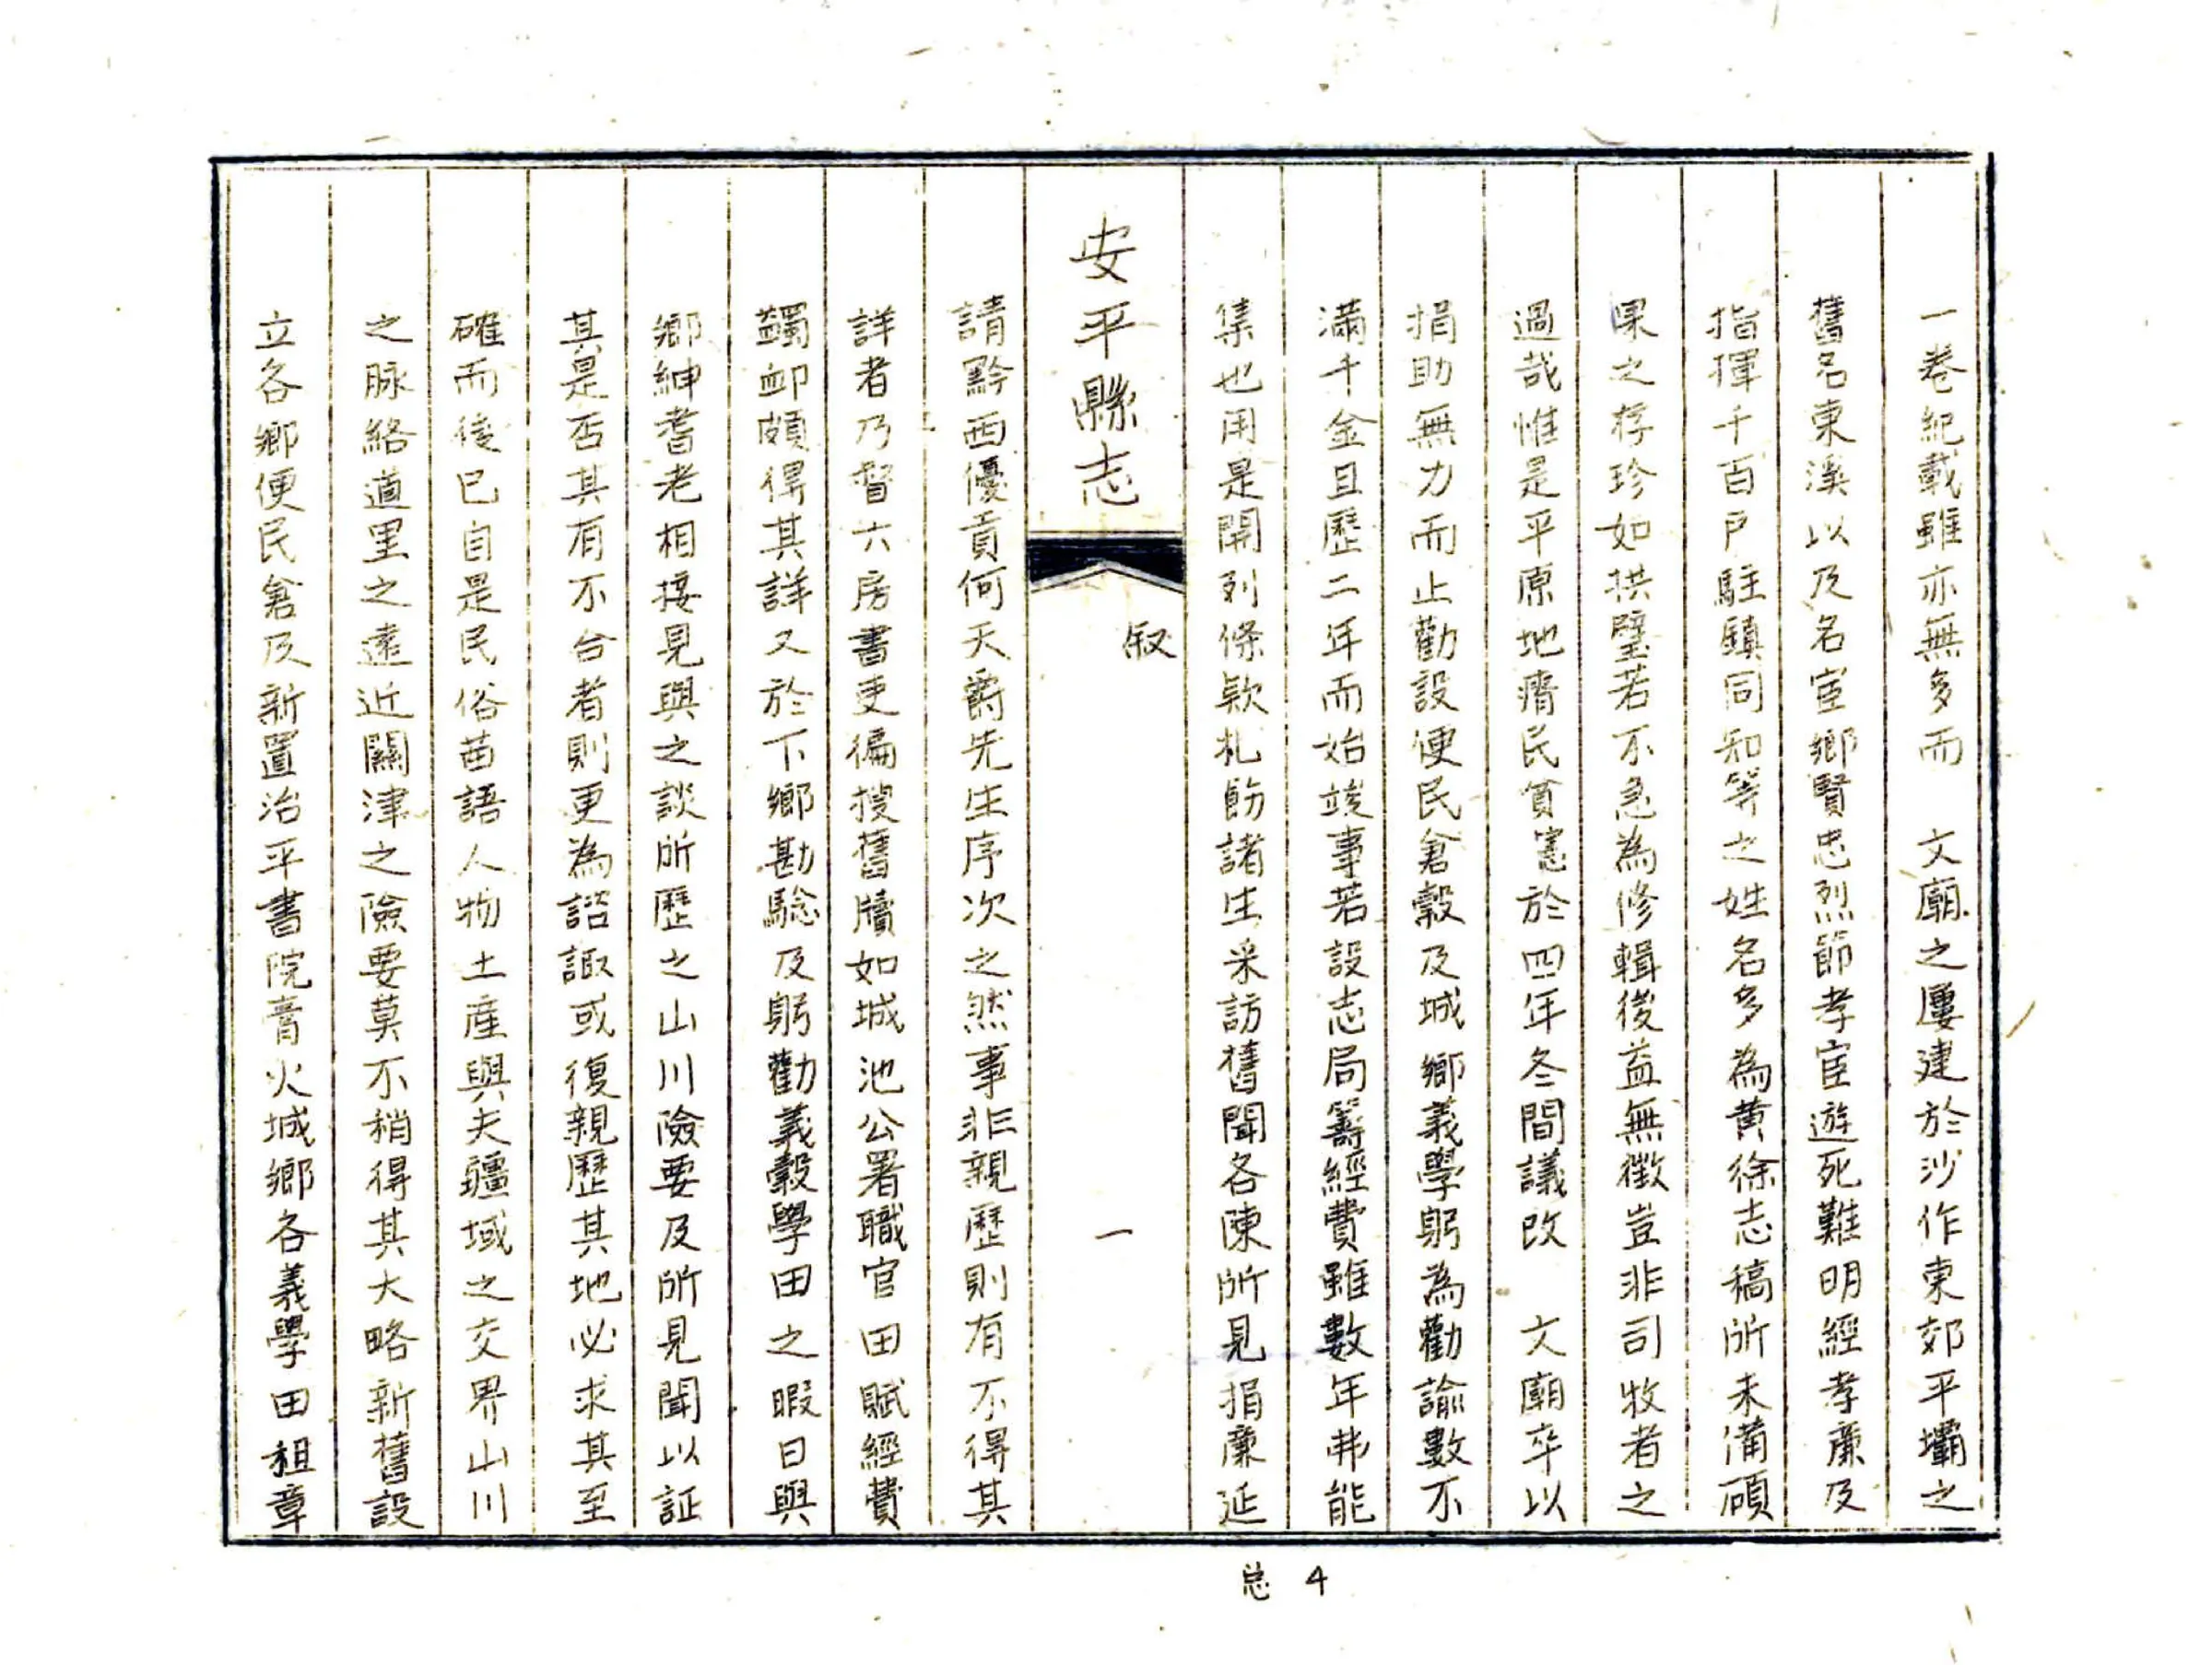 一卷紀載雖亦無多而　文廟之屢建於沙作東郊平壩之
舊名東溪以及名宦鄉賢忠烈節孝宦遊死難明經孝廉及
指揮千百戶駐鎮同知等之姓名多為黃徐志稿所未備碩
果之存珍如拱璧若不急為修輯後益無徵豈非司牧者之
過哉惟是平原地瘠民貧憲於四年冬間議改　文廟卒以
捐助無力而止勸設便民倉穀及城鄉義學躬為勸諭數不
滿千金且歷二年而始竣事若設志局籌經費雖數年弗能
集也用是開列條欵札飭諸生采訪舊聞各陳所見捐廉延
安平縣志
叙
一
請黔西優貢何天爵先生序次之然事非親歷則有不得其
詳者乃督六房書吏徧搜舊牘如城池公署職官田賦經費
蠲卹頗得其詳又於下鄉勘騐及躬勸義穀學田之暇日與
鄉紳耆老相接見與之談所歷之山川險要及所見聞以証
其是否其有不合者則更為諮諏或復親歷其地必求其至
確而後已自是民俗苗語人物土產與夫疆域之交界山川
之脉絡道里之遠近關津之險要莫不稍得其大略新舊設
立各鄉便民倉及新置治平書院膏火城鄉各義學田租章
总 4